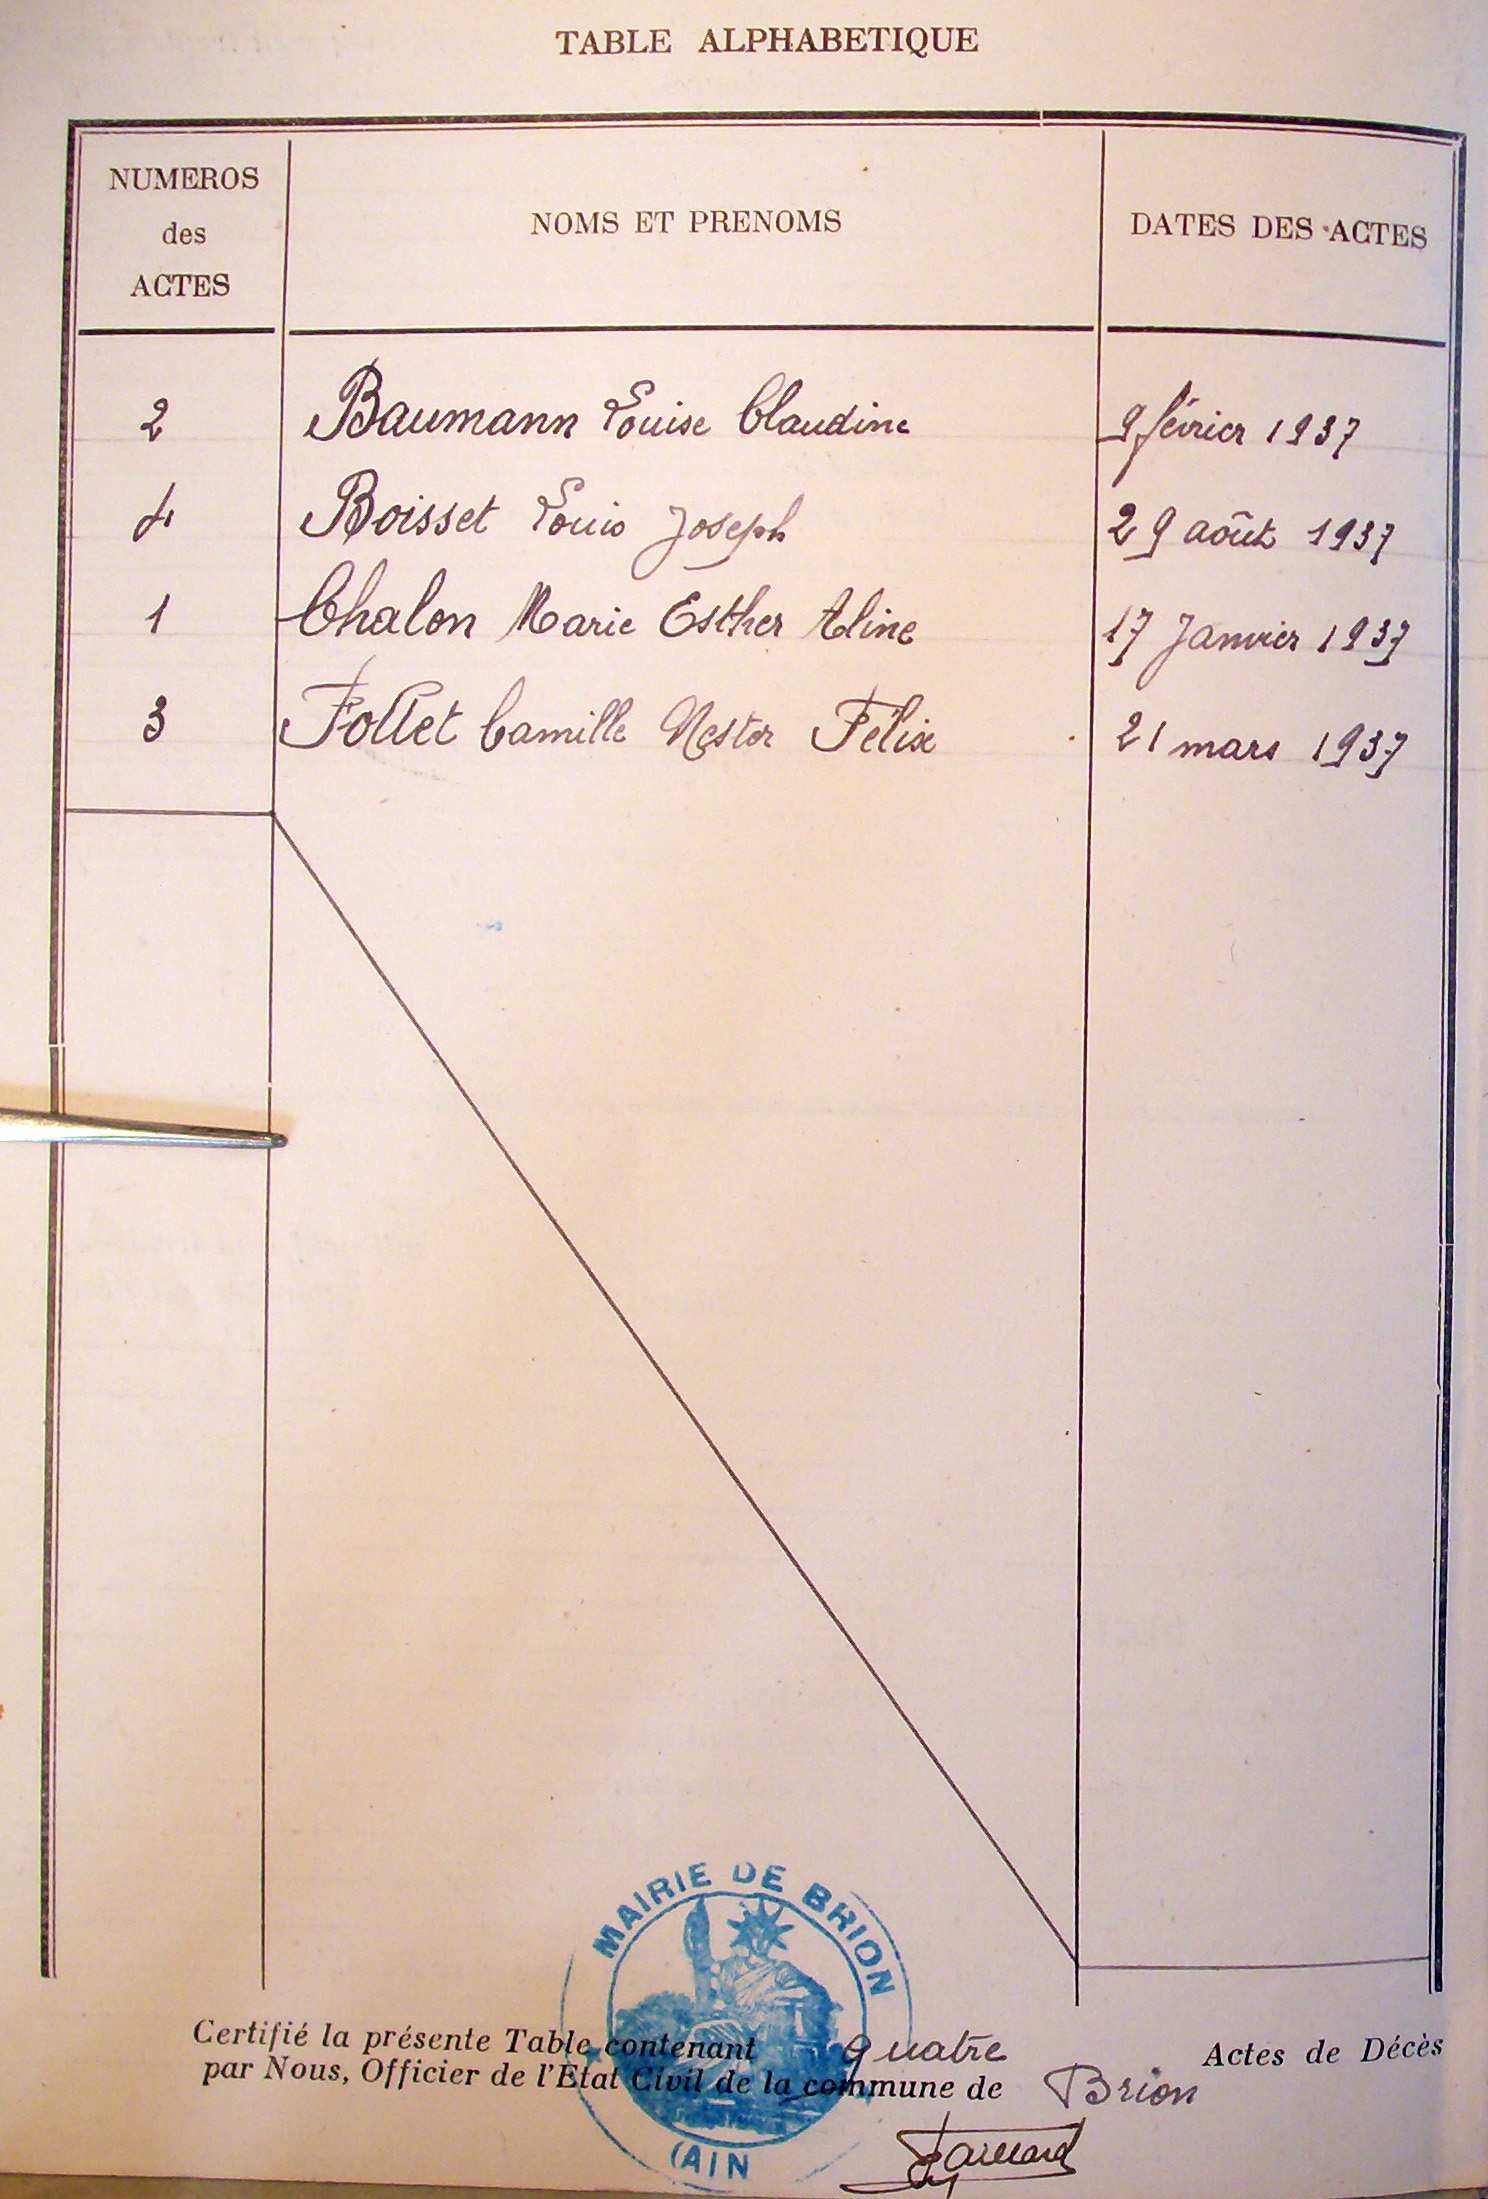 TABLE ALPHABETIQUE
NUMEROS
des
ACTES
NOMS ET PRENOMS
DATES DES ACTES
2 Baumann Louise Claudine 9 février 1937
4 Boisset Louis Joseph 29 août 1937
1 Chalon Marie Esther Aline 17 Janvier 1937
3 Follet Camille Nestor Félix 21 mars 1937
MAIRIE DE BRION
Certifié la présente Table contenant quatre Actes de Décès
par Nous, Officier de l'Etat Civil de la commune de Brion
(AIN